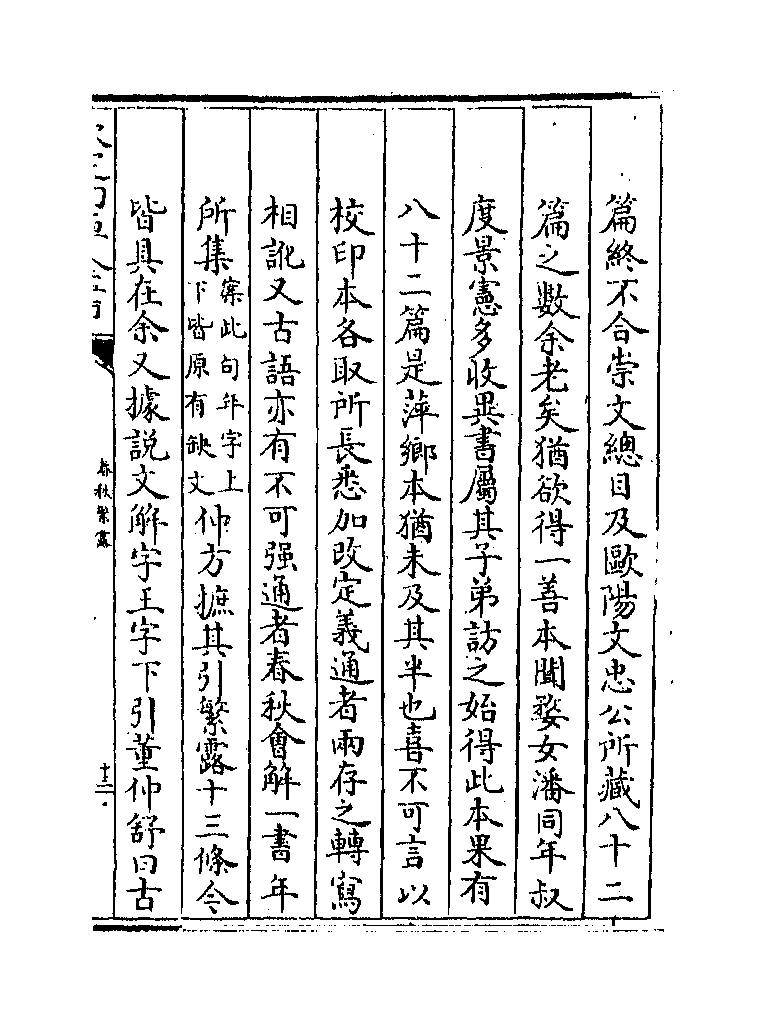 篇終不合崇文總目及歐陽文忠公所藏八十二
篇之數余老矣猶欲得一善本聞婺女潘同年叔
度景憲多收異書屬其子弟訪之始得此本果有
八十二篇是萍鄉本猶未及其半也喜不可言以
校印本各取所長悉加改定義通者兩存之轉寫
相訛又古語亦有不可强通者春秋會解一書年
所集案此句年字上下皆原有缺文仲方摭其引繁露十三條今
皆具在余又據說文解字王字下引董仲舒曰古
春秋繁露